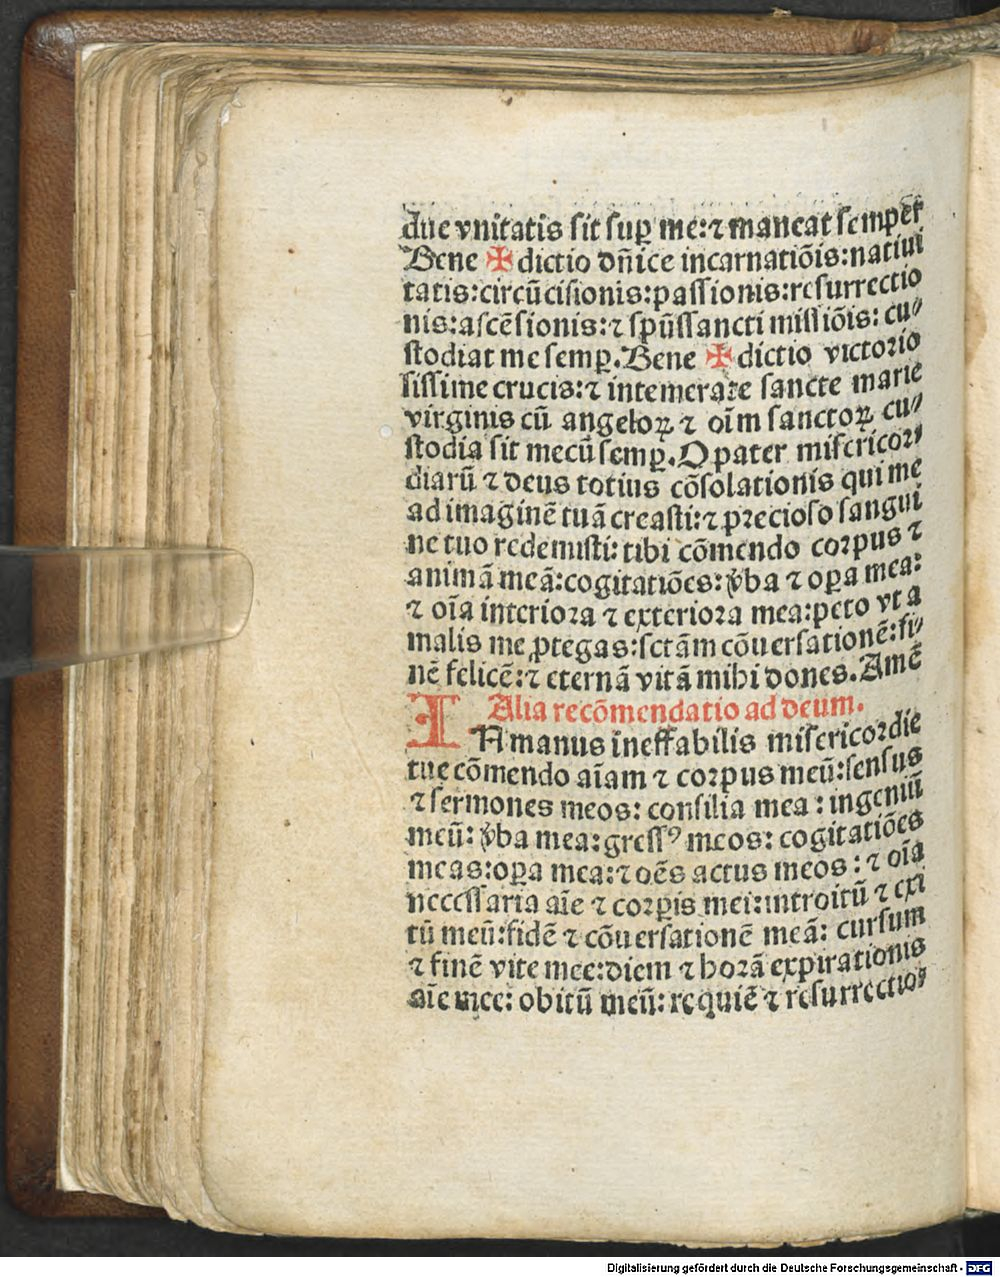 due vnitatis sit suꝑ me:⁊ maneat semper
Bene ✠ dictio dñice incarnatiõis:natiui
tatis:circũcisionis:passionis:resurrectio
nis:ascẽsionis:⁊ spũssancti missiõis: cu⸗
stodiat me semꝑ. Bene ✠ dictio victorio
sissime crucis:⁊ intemerate sancte marie
virginis cũ angeloꝝ ⁊ oĩm sanctoꝝ cu⸗
stodia sit mecũ semꝑ. O pater misericor⸗
diarũ ⁊ deus totius cõsolationis qui me
ad imaginẽ tuã creasti:⁊ precioso sangui
ne tuo redemisti: tibi cõmendo corpus ⁊
animã meã:cogitatiões: v̾ba ⁊ oꝑa mea:
⁊ oĩa interiora ⁊ exteriora mea:peto vt a
malis me ꝓtegas:sctãm cõuersationẽ:fi⸗
nẽ felicẽ:⁊ eternã vitã mihi dones. Amẽ
Alia recõmendatio ad deum.
IN manus ineffabilis misericordie
tue cõmendo aĩam ⁊ corpus meũ:sensus
⁊ sermones meos: consilia mea : ingeniũ
meũ: v̾ba mea: gressꝰ meos: cogitatiões
meas:oꝑa mea:⁊ oẽs actus meos : ⁊ oĩa
necessaria aĩe ⁊ corꝑis mei:introitũ ⁊ exi
tũ meũ:fidẽ ⁊ cõuersationẽ meã: cursum
⁊ finẽ vite mee:diem ⁊ horã expirationis
aĩe mee: obitũ meũ: requiẽ ⁊ resurrectio⸗
Digitalisierung gefördert durch die Deutsche Forschungsgemeinschaft - DFG